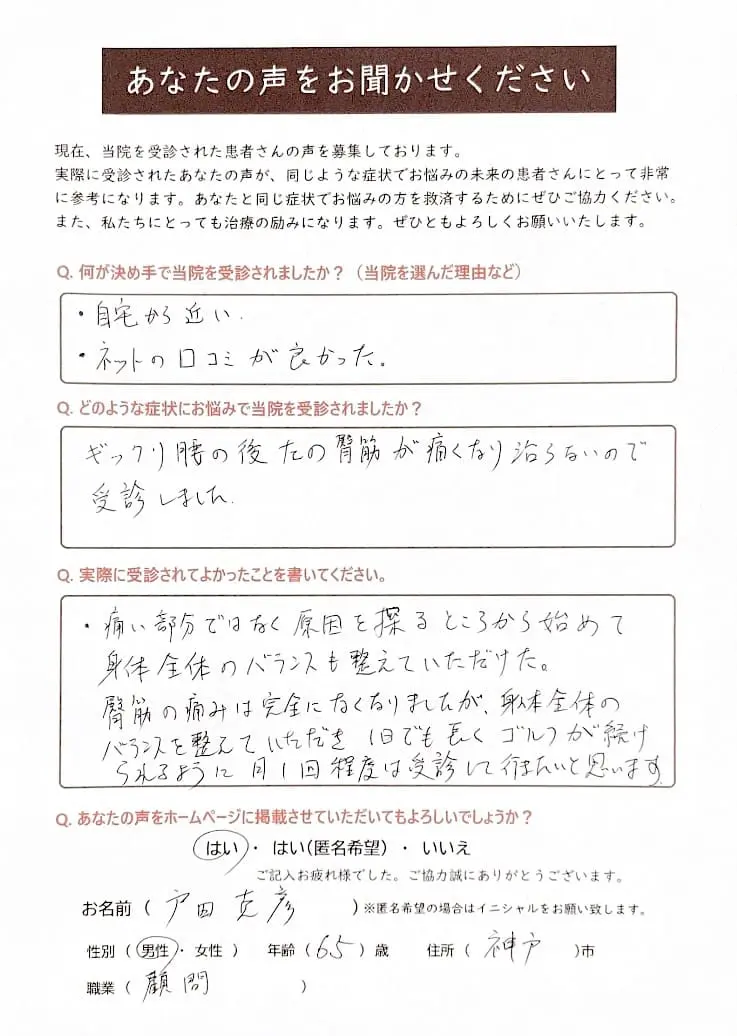 あなたの声をお聞かせください
現在、当院を受診された患者さんの声を募集しております。
実際に受診されたあなたの声が、同じような症状でお悩みの未来の患者さんにとって非常
に参考になります。あなたと同じ症状でお悩みの方を救済するためにぜひご協力ください。
また、私たちにとっても治療の励みになります。ぜひともよろしくお願いいたします。
Q. 何が決め手で当院を受診されましたか？（当院を選んだ理由など）
・自宅から近い.
・ネットの口コミが良かった。
Q. どのような症状にお悩みで当院を受診されましたか？
ギックリ腰の後左の臀筋が痛くなり治らないので
受診しました.
Q. 実際に受診されてよかったことを書いてください。
・痛い部分ではなく原因を探るところから始めて
身体全体のバランスも整えていただけた。
臀筋の痛みは完全になくなりましたが、身体全体の
バランスを整えていただき1日でも長くゴルフが続け
られるように月1回程度は受診して行きたいと思います.
Q. あなたの声をホームページに掲載させていただいてもよろしいでしょうか？
はい ・ はい（匿名希望） ・ いいえ
ご記入お疲れ様でした。ご協力誠にありがとうございます。
お名前（ 戸田 克彦 ）※匿名希望の場合はイニシャルをお願い致します。
性別（ 男性 ・ 女性 ） 年齢（ 65 ）歳 住所（ 神戸 ）市
職業（ 顧問 ）